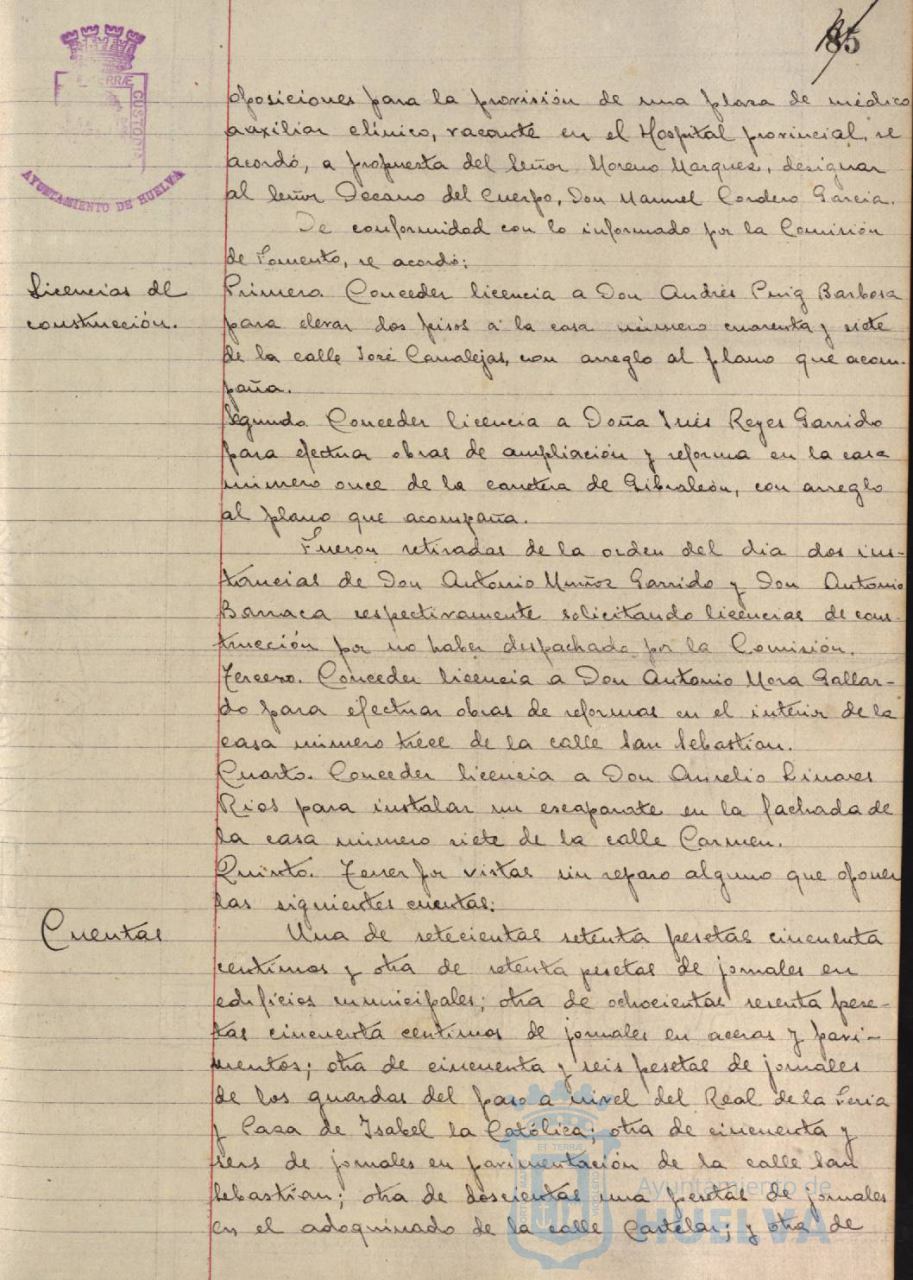 85
TERRÆ
CUSTODI
AYUNTAMIENTO DE HUELVA
oposiciones para la provisión de una plaza de médico
auxiliar clínico, vacante en el Hospital provincial, se
acordó, a propuesta del Señor Moreno Marquez, designar
al Señor Decano del Cuerpo, Don Manuel Cordero Garcia.
De conformidad con lo informado por la Comisión
de Fomento, se acordó:
Licencias de
construcción.
Primero. Conceder licencia a Don Andrés Puig Barbosa
para elevar dos pisos a la casa número cuarenta y siete
de la calle José Canalejas, con arreglo al plano que acom-
paña.
Segundo. Conceder licencia a Doña Inés Reyes Garrido
para efectuar obras de ampliación y reforma en la casa
número once de la carretera de Gibraleón, con arreglo
al plano que acompaña.
Fueron retiradas de la orden del dia dos ins-
tancias de Don Antonio Muñoz Garrido y Don Antonio
Barraca respectivamente solicitando licencias de cons-
trucción por no haber despachado por la Comisión.
Tercero. Conceder licencia a Don Antonio Mora Gallar-
do para efectuar obras de reformas en el interior de la
casa número trece de la calle San Sebastian.
Cuarto. Conceder licencia a Don Aurelio Linares
Rios para instalar un escaparate en la fachada de
la casa número siete de la calle Carmen.
Quinto. Tener por vistas sin reparo alguno que oponer
las siguientes cuentas:
Cuentas
Una de setecientas setenta pesetas cincuenta
centimos y otra de setenta pesetas de jornales en
edificios municipales; otra de ochocientas sesenta pese-
tas cincuenta centimos de jornales en aceras y pavi-
mentos; otra de cincuenta y seis pesetas de jornales
de los guardas del paso a nivel del Real de la Feria
y Casa de Isabel la Católica; otra de cincuenta y
seis de jornales en pavimentación de la calle San
Sebastian; otra de doscientas una pesetas de jornales
en el adoquinado de la calle Castelar; y otra de
Ayuntamiento de
HUELVA